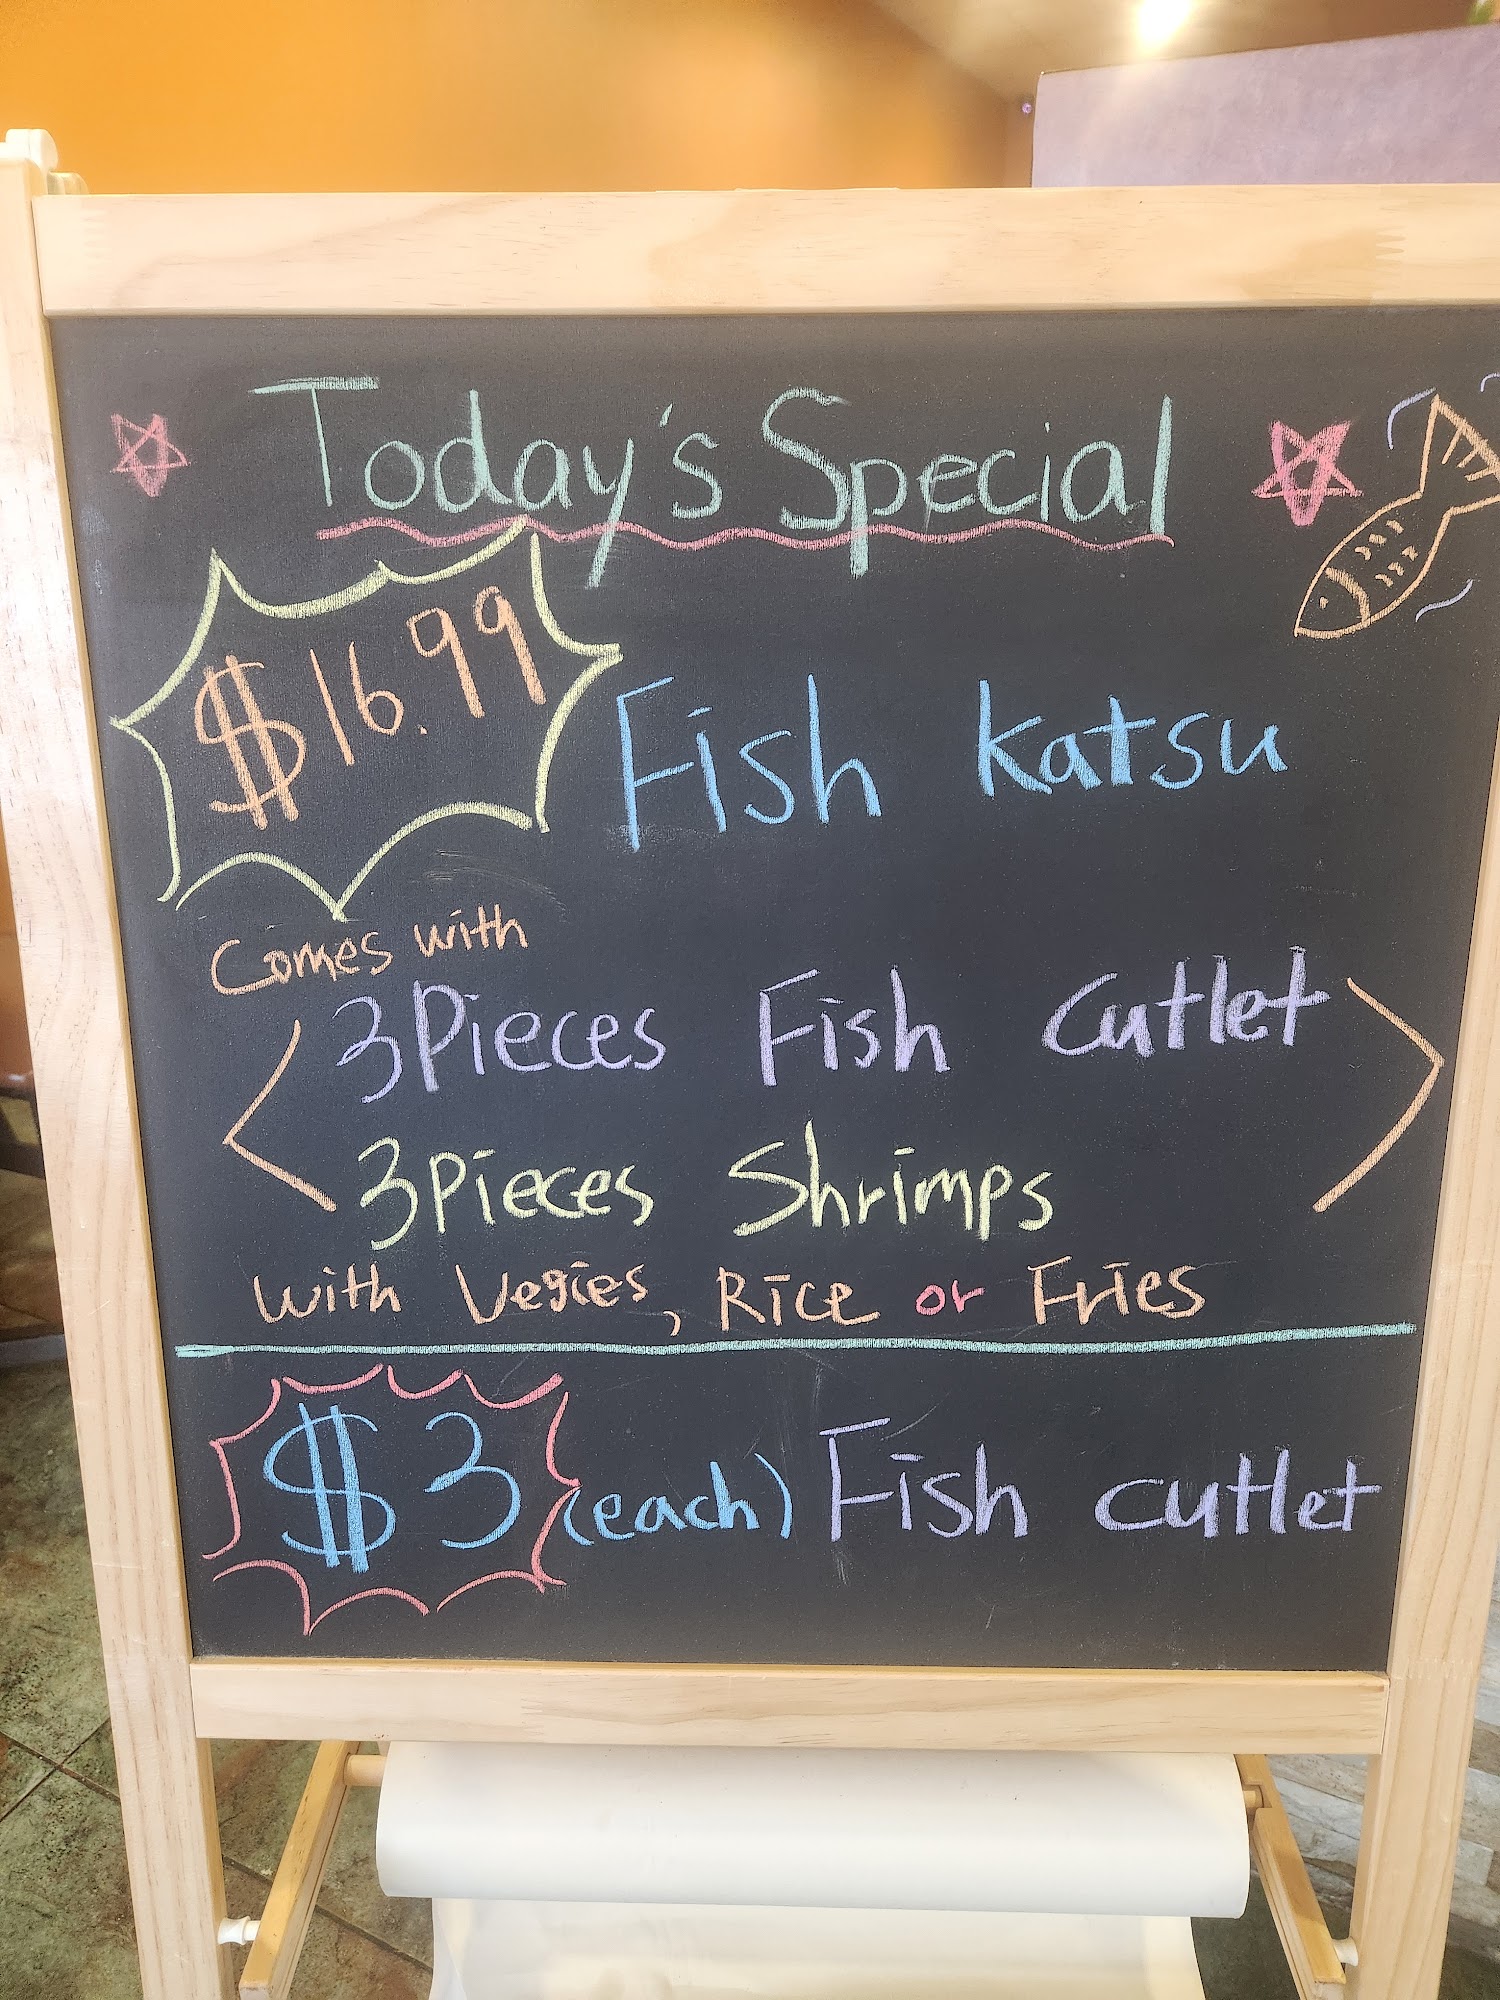 Today's Special
$16.99
Fish Katsu
Comes with
3 Pieces Fish Cutlet
3 Pieces Shrimps
with Vegies, Rice or Fries
$3 (each) Fish Cutlet